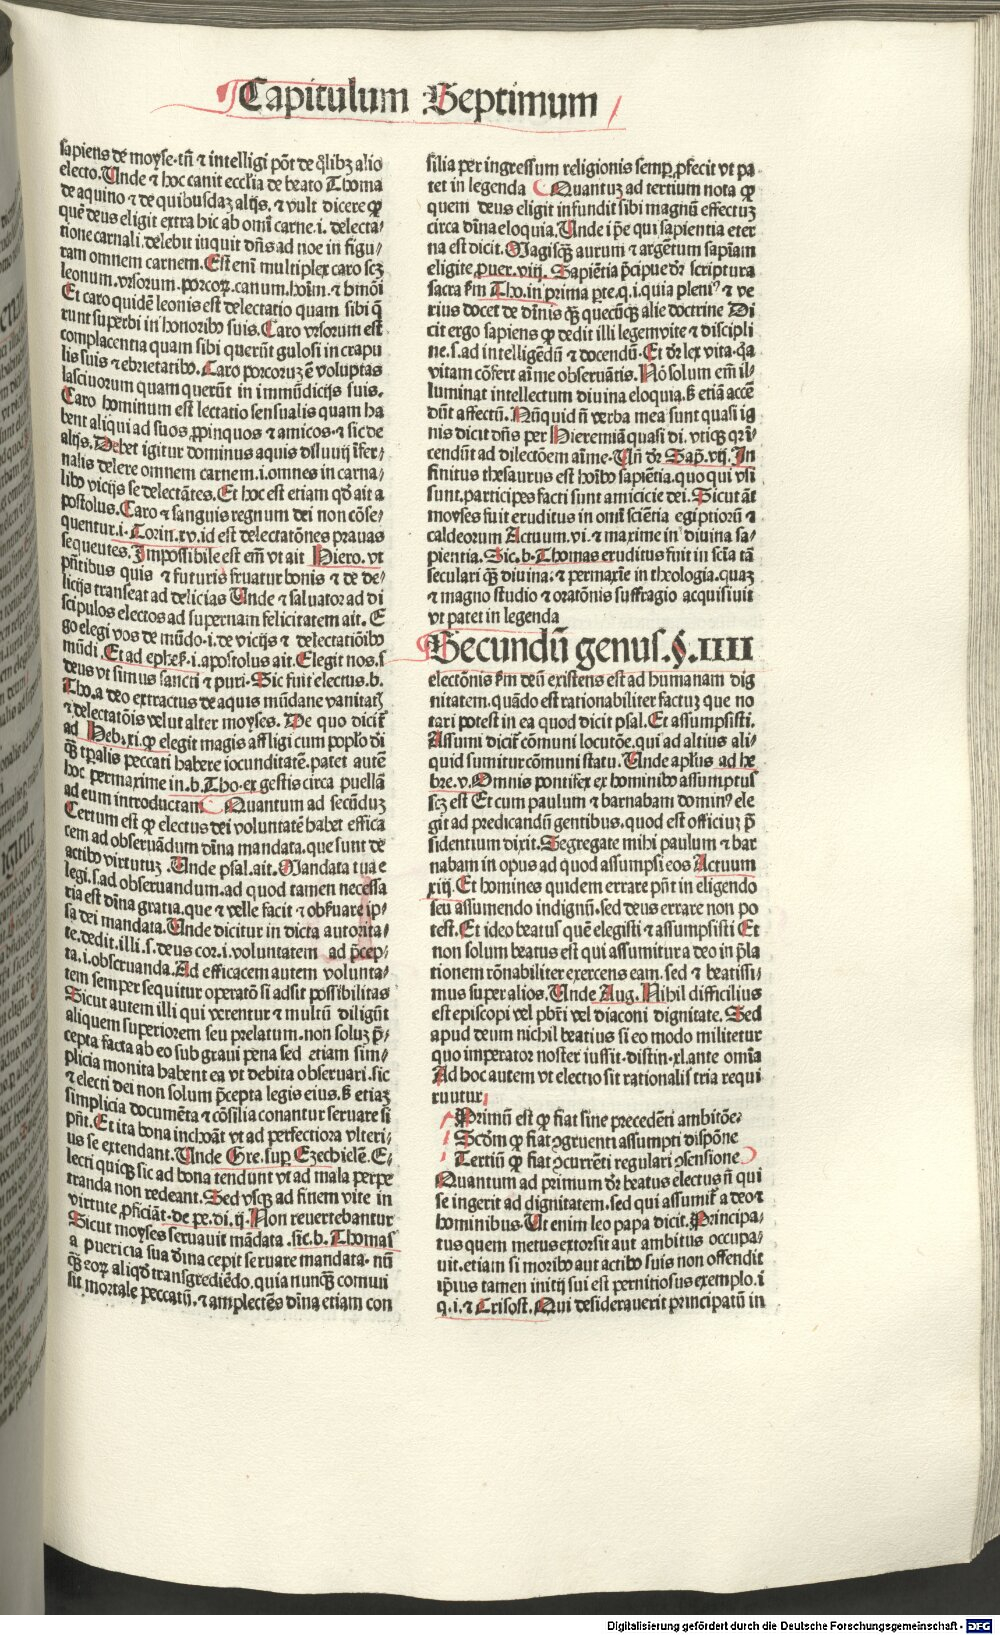 Capitulum Septimum
sapiens de moyse·tn̄ ⁊ intelligi pōt de qͥlibꝫ alio
electo.Unde ⁊ hoc canit eccl̄ia de beato Thoma
de aquino ⁊ de quibusdaꝫ alijs.⁊ vult dicere ꝙ
quē deus eligit extra hic ab omī carne.i.delecta⸗
tione carnali.delebit inquit dn̄s ad noe in figu⸗
ram omnem carnem.Est enī multiplex caro scꝫ
leonum.vrsorum.porcoꝝ.canum.hoīm.⁊ hmōi
Et caro quidē leonis est delectatio quam sibi q̄
runt superbi in honoribꝰ suis.Caro vrsorum est
complacentia quam sibi querūt gulosi in crapu
lis suis ⁊ ebrietatibꝰ.Caro porcoruꝫ ē voluptas
lasciuorum quam querūt in immūdicijs suis.
Caro hominum est lectatio sensualis quam ha
bent aliqui ad suos ꝓpinquos ⁊ amicos·⁊ sic de
alijs.Debet igitur dominus aquis diluuij īfer⸗
nalis delere omnem carnem.i.omnes in carna⸗
libꝰ vicijs se delectātes.Et hoc est etiam qd̄ ait a
postolus.Caro ⁊ sanguis regnum dei non cōse⸗
quentur.i·Corin.xv.id est delectatōnes prauas
sequentes.Impossibile est em̄ vt ait Hiero.vt
pn̄tibus quis ⁊ futuris fruatur bonis ⁊ de de⸗
licijs transeat ad delicias Unde ⁊ saluator ad di
scipulos electos ad supernam felicitatem ait.E
go elegi vos de mūdo·i.de vicijs ⁊ delectatiōibꝰ
mūdi.Et ad ephes̄.i.apostolus ait.Elegit nos.s
deus vt simus sancti ⁊ puri·Sic fuit electus.b.
Tho.a deo extractus de aquis mūdane vanitatꝭ
⁊ delectatōis velut alter moyses.De quo dicit̄
ad Heb.xi.ꝙ elegit magis affligi cum popl̄o di
qͣꝫ tꝑalis peccati habere iocunditatē.patet autē
hoc permaxime in.b.Tho·ex gestis circa puellā
ad eum introductam Quantum ad secūduꝫ
Certum est ꝙ electus dei voluntatē habet effica
cem ad obseruādum dīna mandata.que sunt de
actibꝰ virtutuꝫ.Unde psal.ait.Mandata tua e
legi.s.ad obseruandum.ad quod tamen necessa
ria est dīna gratia.que ⁊ velle facit·⁊ obẜuare ip⸗
sa dei mandata.Unde dicitur in dicta autorita⸗
te.dedit.illi.s.deus cor.i.voluntatem ad p̄cep⸗
ta.i.obseruanda.Ad efficacem autem volunta⸗
tem semper sequitur operatō si adsit possibilitas
Sicut autem illi qui verentur ⁊ multū diligūt
aliquem superiorem seu prelatum.non soluꝫ p̄⸗
cepta facta ab eo sub graui pena sed etiam sim⸗
plicia monita habent ea vt debita obseruari.sic
⁊ electi dei non solum p̄cepta legis eius.ẜ etiaꝫ
simplicia documēta ⁊ cōsilia conantur seruare si
pn̄t.Et ita bona inchoāt vt ad perfectiora vlteri⸗
us se extendant.Unde Gre.suꝑ Ezechielē.E⸗
lecti quicqͣꝫ sic ad bona tendunt vt ad mala perpe
tranda non redeant.Sed vsqꝫ ad finem vite in
virtute ꝓficiāt·de pe.di.ij.Non reuertebantur
Sicut moyses seruauit mādata.sic.b.Thomas
a puericia sua dīna cepit seruare mandata·nū
qͣꝫ eoꝝ aliqd̄ transgrediēdo.quia nunqͣꝫ comui
sit mortale peccatū.⁊ amplectēs dīna etiam con
silia per ingressum religionis semꝑ ꝓfecit vt pa
tet in legenda Quantuꝫ ad tertium nota ꝙ
quem deus eligit infundit sibi magnū effectuꝫ
circa dīna eloquia.Unde ip̄e qui sapientia eter
na est dicit.Magisqͣꝫ aurum ⁊ argētum sapiam
eligite puer.viij.Sapiētia p̄cipue dr̄ scriptura
sacra ẜm Tho.in prima ꝑte.q.i.quia pleniꝰ ⁊ ve
rius docet de dīnis qͣꝫ quecūqꝫ alie doctrine Di
cit ergo sapiens ꝙ dedit illi legem vite ⁊ discipli
ne.s.ad intelligēdū ⁊ docendū·Et dr̄ lex vita·qꝛ
vitam cōfert aīme obseruātis.Nō solum em̄ il⸗
luminat intellectum diuina eloquia.ẜ etiā accē
dūt affectū.Nūquid n̄ verba mea sunt quasi ig
nis dicit dn̄s per Hieremiā quasi di.vtiqꝫ qꝛ ī⸗
cendūt ad dilectōem aīme·Un̄ dr̄ Sap̄.vij.In
finitus thesaurus est hoībꝰ sapiētia.quo qui vsi
sunt.participes facti sunt amicicie dei.Sicut āt
moyses fuit eruditus in omī sciētia egiptiorū ⁊
caldeorum Actuum.vi.⁊ maxime in diuina sa⸗
pientia.Sic.b.Thomas eruditus fuit in scīa tā
seculari qͣꝫ diuina.⁊ permaxīe in theologia.quaꝫ
⁊ magno studio ⁊ oratōnis suffragio acquisiuit
vt patet in legenda
Secundū genus.§.IIII
electōnis ẜm deū existens est ad humanam dig
nitatem.quādo est rationabiliter factuꝫ que no
tari potest in ea quod dicit psal.Et assumpsisti.
Assumi dicit̄ cōmuni locutōe.qui ad altius ali⸗
quid sumitur cōmuni statu.Unde apl̄us ad he
bre.v.Omnis pontifex ex hominibꝰ assumptus
scꝫ est Et cum paulum ⁊ barnabam dominꝰ ele
git ad predicandū gentibus.quod est officiuꝫ p̄
sidentium dixit.Segregate mihi paulum ⁊ bar
nabam in opus ad quod assumpsi eos Actuum
xiij.Et homines quidem errare pn̄t in eligendo
seu assumendo indignū.sed deus errare non po
test.Et ideo beatus quē elegisti ⁊ assumpsisti Et
non solum beatus est qui assumitur a deo in p̄la
tionem rōnabiliter exercens eam.sed ⁊ beatissi⸗
mus super alios.Unde Aug.Nihil difficilius
est episcopi vel pbr̄i vel diaconi dignitate.Sed
apud deum nichil beatius si eo modo militetur
quo imperator noster iussit.distin.xl.ante omīa
Ad hoc autem vt electio sit rationalis tria requi
runtur
Primū est ꝙ fiat sine precedēti ambitōe·
Scdm̄ ꝙ fiat ꝯgruenti assumpti dispōne
Tertiū ꝙ fiat ꝯcurrēti regulari ꝯsensione
Quantum ad primum dr̄ beatus electus n̄ qui
se ingerit ad dignitatem.sed qui assumit̄ a deo ⁊
hominibus.Ut enim leo papa dicit.Principa⸗
tus quem metus extorsit aut ambitus occupa⸗
uit.etiam si moribꝰ aut actibꝰ suis non offendit
ip̄ius tamen initij sui est pernitiosus exemplo.i
q.i.⁊ Crisost.Qui desiderauerit principatū in
Digitalisierung gefördert durch die Deutsche Forschungsgemeinschaft - DFG